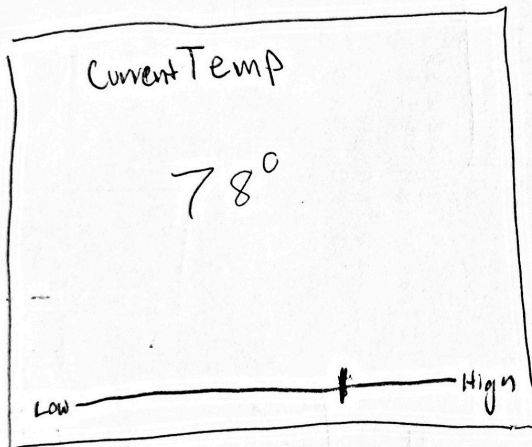 Current Temp
78°
Low High